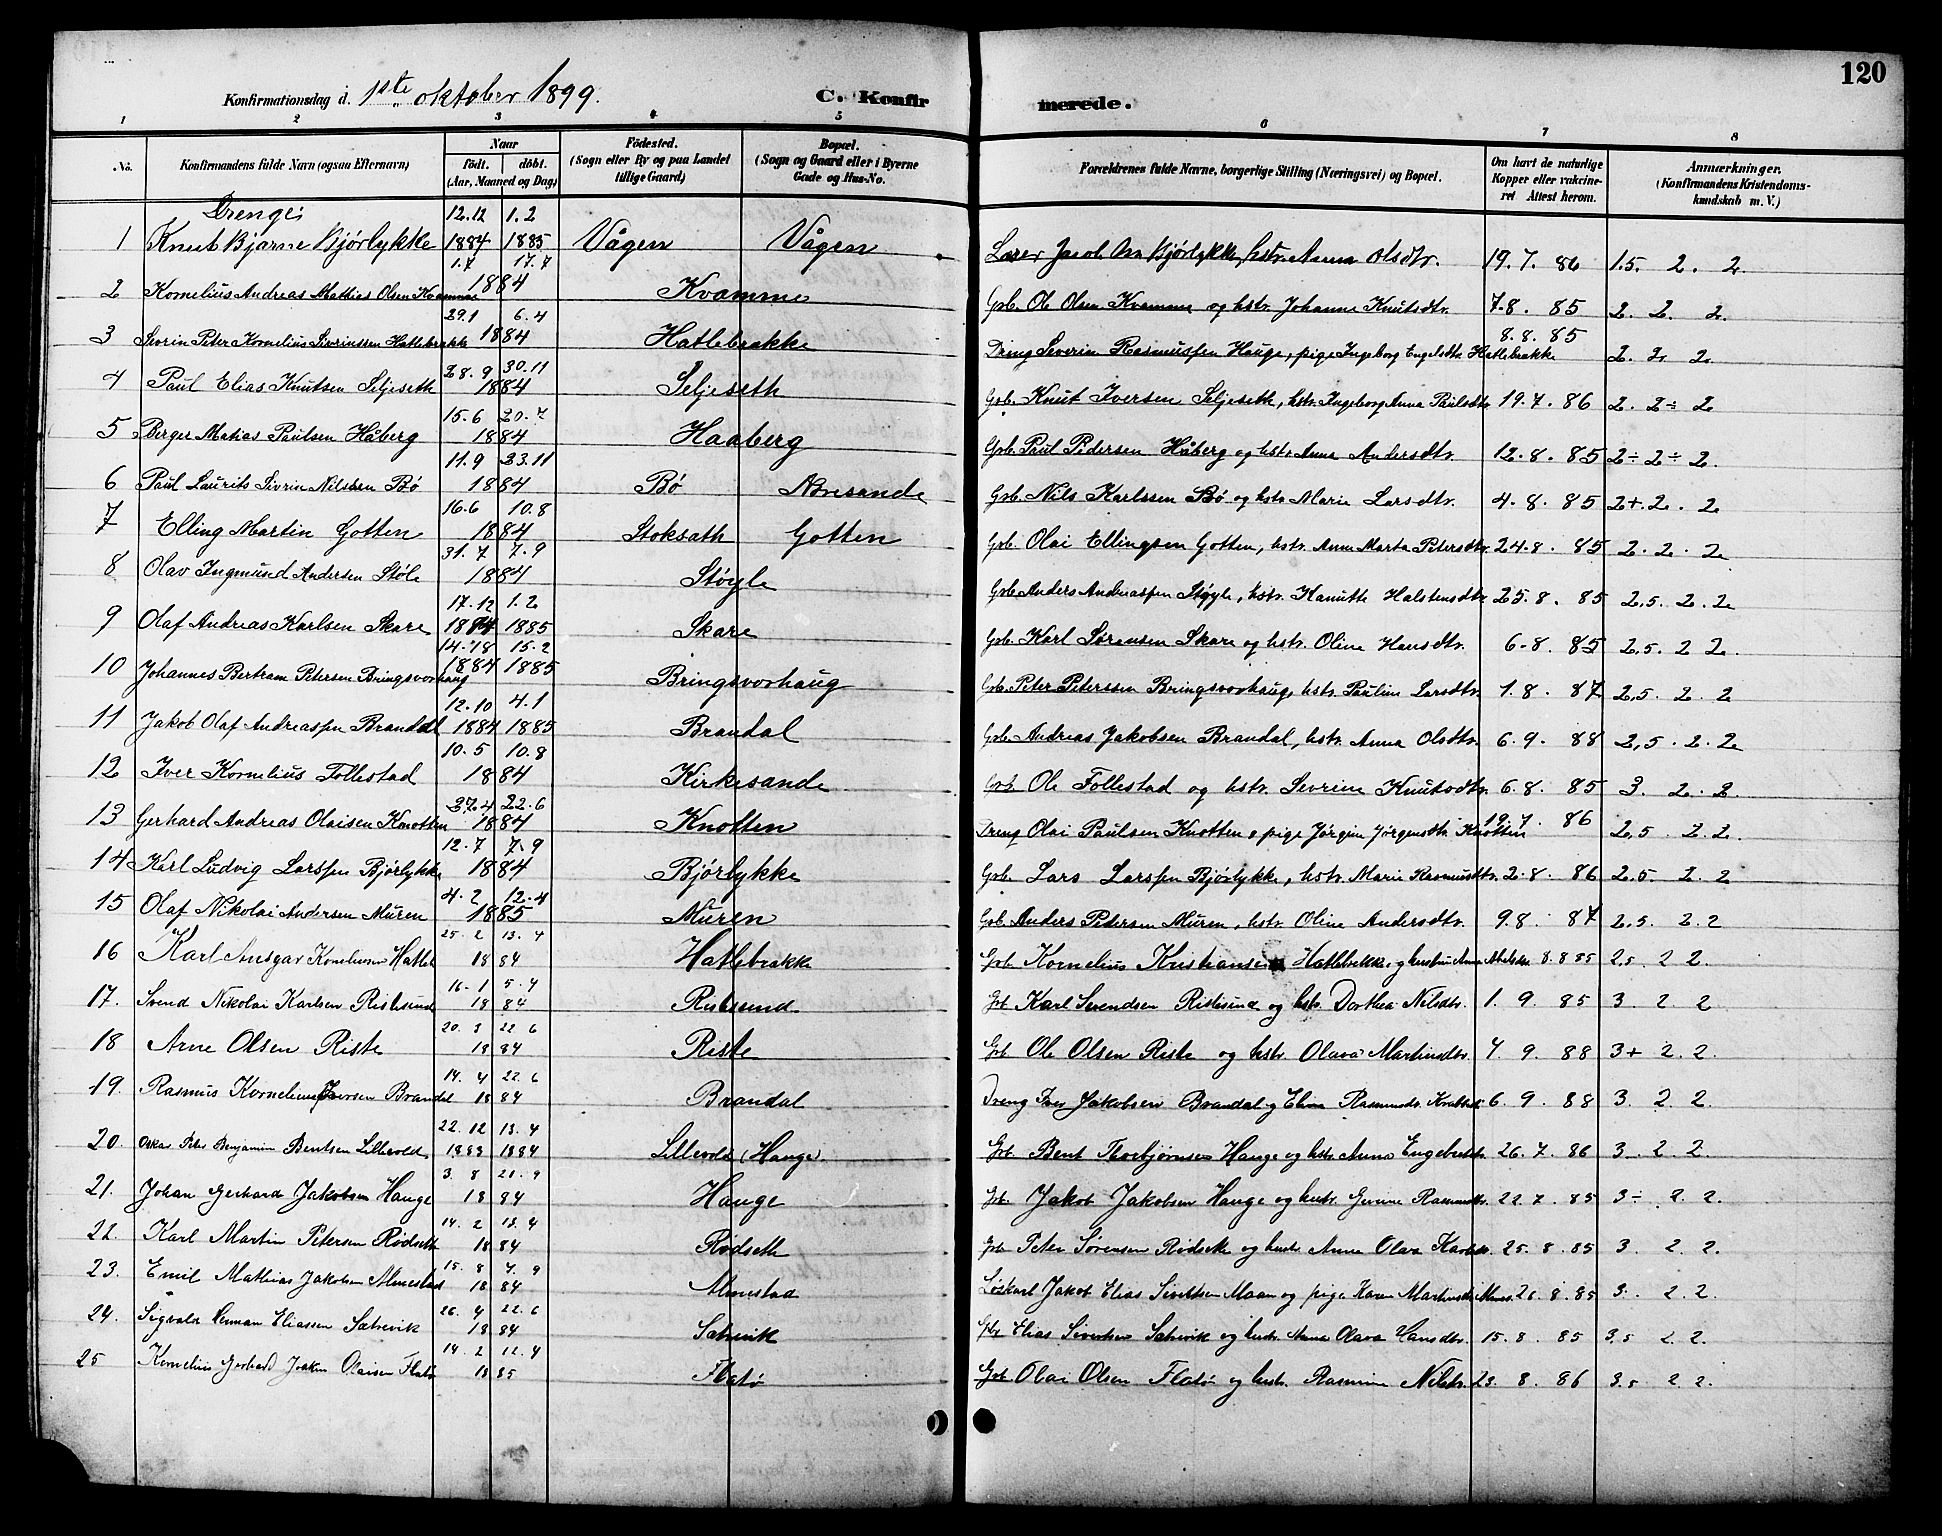 120
Konfirmationsdag d. 1ste oktober 1899. C. Konfirmerede.
1 2 3 4 5 6 7 8
No. Konfirmandens fulde Navn (ogsaa Efternavn) Naar født. døbt. (Aar, Maaned og Dag) Fødested. (Sogn eller By og paa Landet tillige Gaard) Bopæl. (Sogn og Gaard eller i Byerne Gade og Hus-No. Forældrenes fulde Navne, borgerlige Stilling (Næringsvei) og Bopæl. Om havt de naturlige Kopper eller vakcineret Attest herom. Anmærkninger. (Konfirmandens Kristendomskundskab m. V.)
Drenge:
1 Knut Bjarne Bjørlykke 12.12 1884 1.2 1885 Vågen Vågen Lærer Jacob Bjørlykke, hstr. Anna Olsdtr. 19. 7. 86 1.5. 2. 2.
2 Kornelius Andreas Mathias Olsen Kvamme 1.7 17.7 1884 Kvamme Grb. Ole Olsen Kvamme og hstr. Johanne Knutsdtr. 7.8. 85 2. 2. 2.
3 Sevrin Peter Kornelius Sivrinssen Hatlebrakke 29.1 6.4 1884 Hatlebrakke Dreng Severin Rasmussen Hauge, pige Ingeborg Engelsdtr. Hatlebrakke 8.8.85 2. 2. 2
4 Paul Elias Knutsen Seljeseth 28.9 30.11 1884 Seljeseth Grb. Knut Iversen Seljeseth, hstr. Ingeborg Anna Paulsdtr. 19.7.86 2. 2÷ 2
5 Berger Matias Paulsen Håberg 15.6 20.7 1884 Haaberg Grb. Paul Pedersen Håberg og hstr. Anna Andersdtr. 12.8.85 2÷ 2÷ 2.
6 Paul Laurits Sivrin Nilssen Bø 11.9 23.11 1884 Bø Nøresande Grb. Nils Karlssen Bø og hstr. Marie Larsdtr. 4.8.85 2+. 2. 2
7 Elling Martin Gotten 16.6 10.8 1884 Stoksath Gotten Grb. Olai Ellingsen Gotten, hstr. Anne Marta Petersdtr. 24.8.85 2. 2. 2
8 Olav Ingmund Andersen Støle 31.7 7.9 1884 Støyle Grb. Anders Andreassen Støyle, hstr. Kanutte Halstensdtr. 25.8.85 2,5. 2. 2
9 Olaf Andreas Karlsen Skare 17.12 1884 1.2 1885 Skare Grb. Karl Sørensen Skare og hstr. Oline Hansdtr. 6.8.85 2,5. 2 2.
10 Johannes Bertram Petersen Bringsvorhaug 1884 15.2 1885 Bringsvorhaug Grb. Peter Peterssen Bringsvorhaug, hstr. Pauline Larsdtr. 1.8.87 2,5. 2. 2
11 Jakob Olaf Andreassen Brandal 12.10 1884 4.1 1885 Brandal Grb. Andreas Jakobsen Brandal, hstr. Anna Olsdtr. 6.9.88 2,5. 2. 2
12 Iver Kornelius Follestad 10.5 10.8 1884 Kirkesande Grb. Ole Follestad og hstr. Sevrine Knutsdtr. 6.8.85 3. 2. 2
13 Gerhard Andreas Olaisen Knotten 27.4 22.6 1884 Knotten Dreng Olai Paulsen Knotten, pige Jørgine Jørgensdtr. Knotten 19.7.86 2,5. 2.2.
14 Karl Ludvig Larssen Bjørlykke 12.7 7.9 1884 Bjørlykke Grb. Lars Larssen Bjørlykke, hstr. Marie Rasmusdtr. 2.8.86 2.5. 2. 2
15 Olaf Nikolai Andersen Muren 4.2 12.4 1885 Muren Grb. Anders Petersen Muren, hstr. Oline Andersdtr. 9.8.87 2,5. 2.2
16 Karl Ansgar Korneliussen Hatleb 25.2 13.4 1884 Hatlebrakke Grb. Kornelius Kristiansen Hatlebrekke og hustru Anne 8.8.85 2,5 2 2.
17. Svend Nikolai Karlsen Ristesund 16.1 5.4 1884 Ristesund Grb Karl Svendsen Ristesund og hstr. Dorthea Nilsdtr. 1.9.85 3. 2 2
18 Arne Olsen Riste 20.3 22.6 1884 Riste Grb Ole Olsen Riste og hstr. Olava Martinsdtr. 4.9.88 3+ 2. 2.
19. Rasmus Kornelius Iversen Brandal 14.4 22.6 1884 Brandal Dreng Iver Jakobsen Brandal og Elina Rasmusdtr. 6.9.88 3. 2. 2.
20. Oskar Peter Benjamin Bentsen Lillevold 22.12 1883 13.4 1884 Lillevold (Hauge). Grb. Bent Thorbjørnsen Hauge og hstr. Anna Engebretsdtr. 26.7.86 3. 2. 2.
21. Johan Gerhard Jakobsen Hauge 3.8 21.9 1884 Hauge Grb. Jakob Jakobsen Hauge og hustr. Gurine Rasmusdtr. 22.7.85 3÷ 2. 2.
22. Karl Martin Petersen Rødseth 14.2 13.4 1884 Rødseth Grb. Peter Sørensen Rødseth og hustr. Anne Olava 25.8.85 3. 2. 2.
23. Emil Mathias Jakobsen Almestad 15.8 7.9 1884 Almestad Løskarl Jakob Elias Sivertsen Maan og pige Karen Martinsdtr. 26.8.85 3. 2. 2.
24. Sigvald Herman Eliassen Sætrevik 26.4 22.6 1884 Sætrevik Grb Elias Sivertsen Sætrevik og hustr. Anne Olava Hansdtr. 15.8.85 3.5 2 2.
25 Kornelius Gerhard Joakim Olaisen Flatø 14.2 12.4 1885 Flatø Grb Olai Olsen Flatø og hustr. Rasmine Nilsdtr. 23.8.86 3.5 2 2.